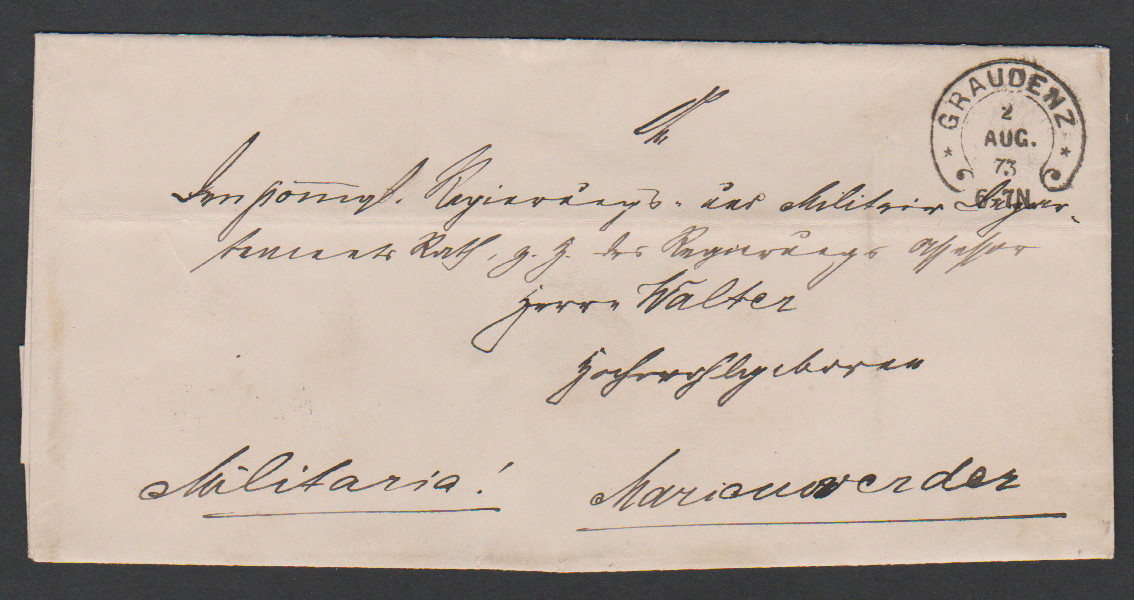 GRAUDENZ
2
AUG.
73
6-7N
An
den Königl. Regierungs- und Militair Depar-
tements Rath, z. Z. des Regierungs Assessor
Herrn Walter
Hochwohlgeboren
Militaria!
Marienwerder